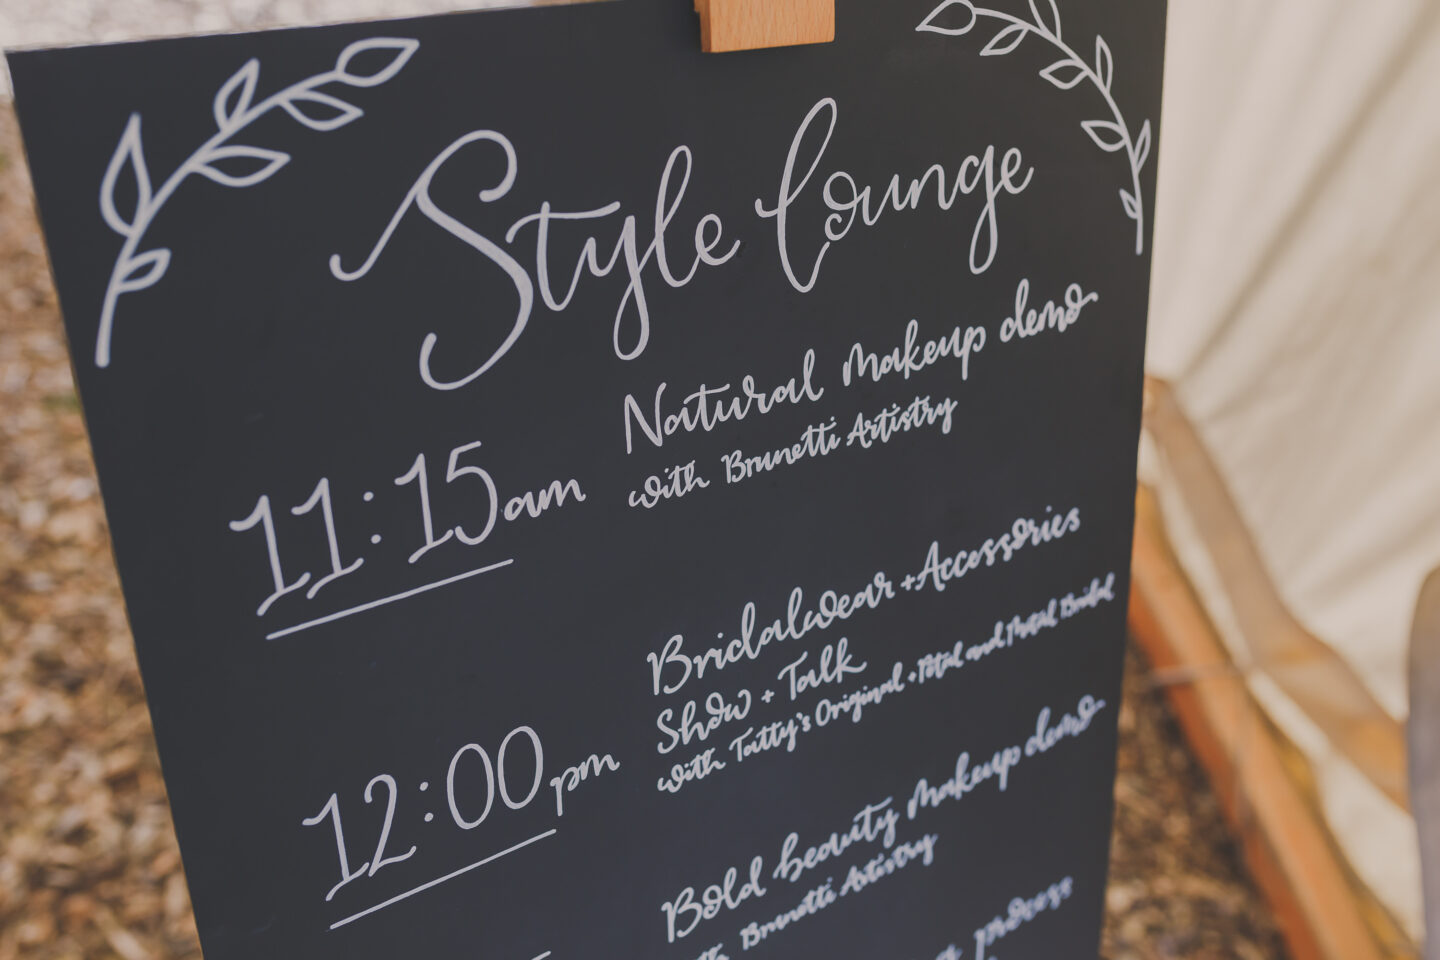 Style Lounge
11:15am
Natural makeup demo
with Brunetti Artistry
12:00pm
Bridalwear + Accessories
Show + Talk
with Tatty's Original + Petal and Metal Bridal
Bold beauty makeup demo
Brunetti Artistry
process